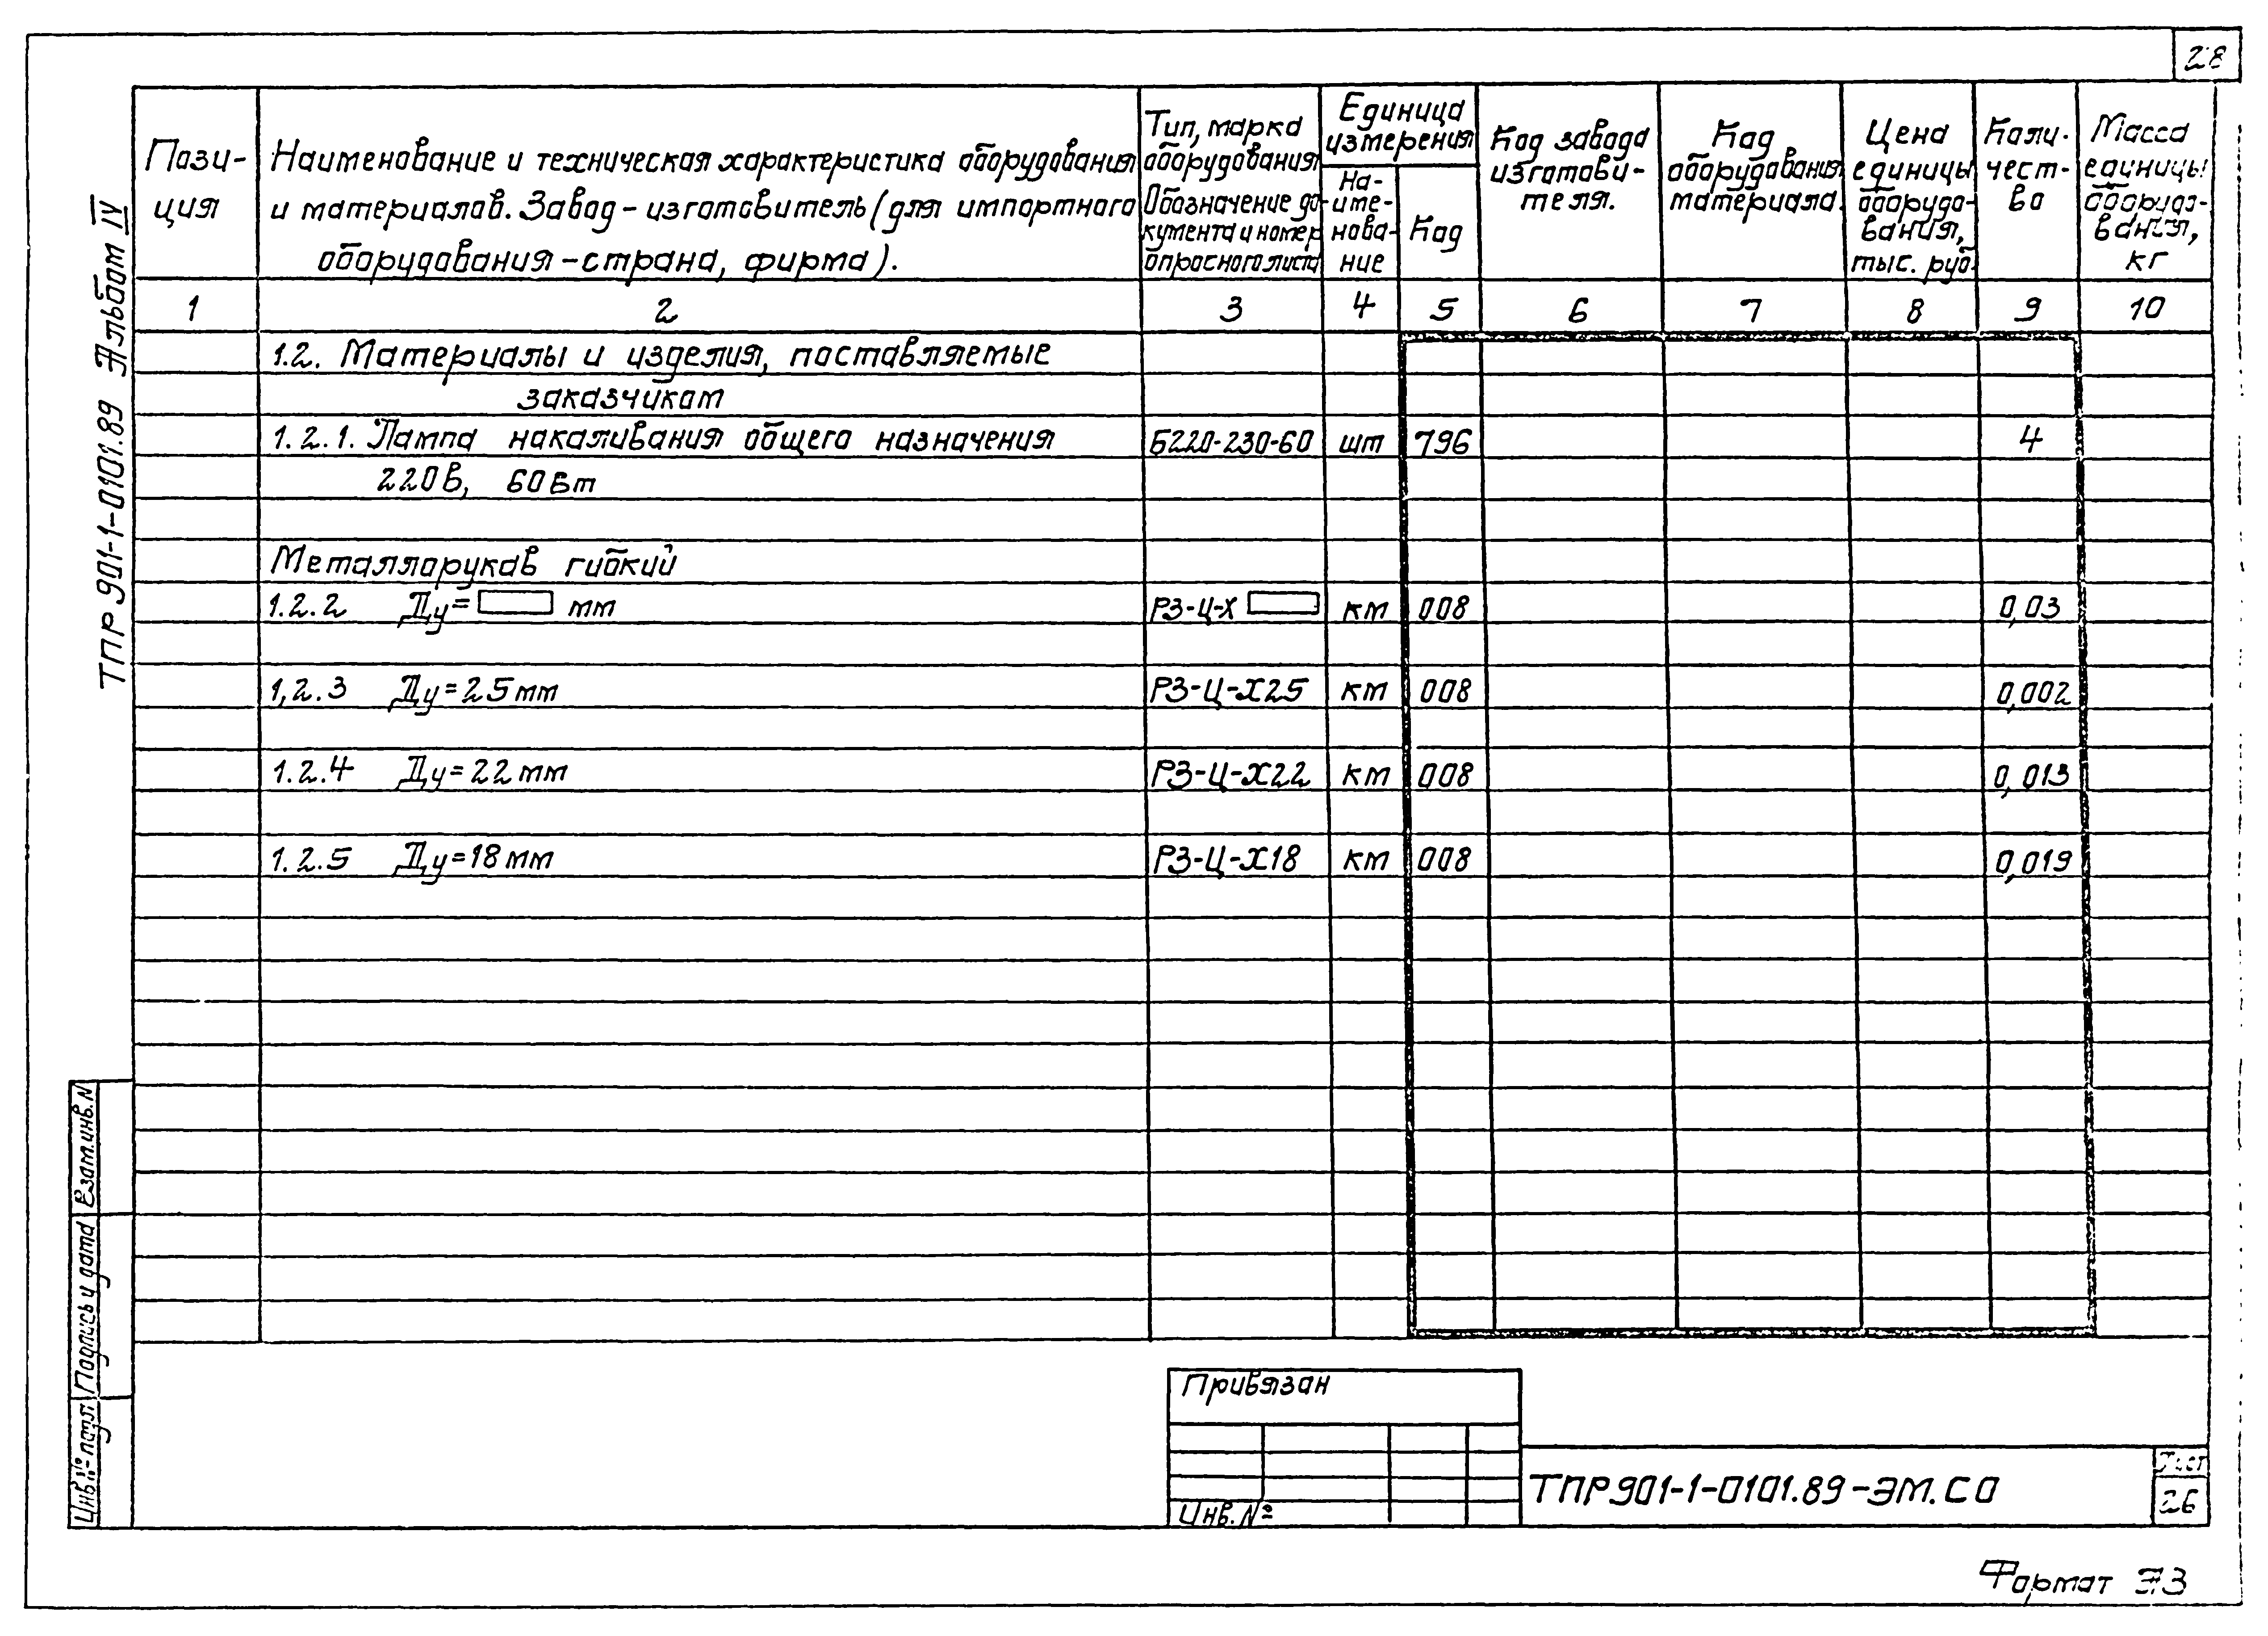 28
ТПР 901-1-0101.89 Альбом IV
Пози-
ция
Наименование и техническая характеристика оборудования
и материалов. Завод-изготовитель (для импортного
оборудования-страна, фирма).
Тип, марка
оборудования
Обозначение до-
кумента и номер
опросного листа
Единица
измерения
На-
име-
нова-
ние
Код
Код завода
изготови-
теля.
Код
оборудования
материала.
Цена
единицы
оборудо-
вания,
тыс. руб.
Коли-
чест-
во
Масса
единицы
оборудо-
вания,
кг
1 2 3 4 5 6 7 8 9 10
1.2. Материалы и изделия, поставляемые
заказчиком
1.2.1. Лампа накаливания общего назначения Б220-230-60 шт 796 4
220В, 60Вт
Металлорукав гибкий
1.2.2 Ду= мм РЗ-Ц-Х км 008 0,03
1,2.3 Ду=25мм РЗ-Ц-Х25 км 008 0,002
1.2.4 Ду=22мм РЗ-Ц-Х22 км 008 0,013
1.2.5 Ду=18мм РЗ-Ц-Х18 км 008 0,019
Взам.инв.N
Подпись и дата
Инв.№подл
Привязан
Инв.№
ТПР901-1-0101.89-ЭМ.СО
Лист
26
Формат А3